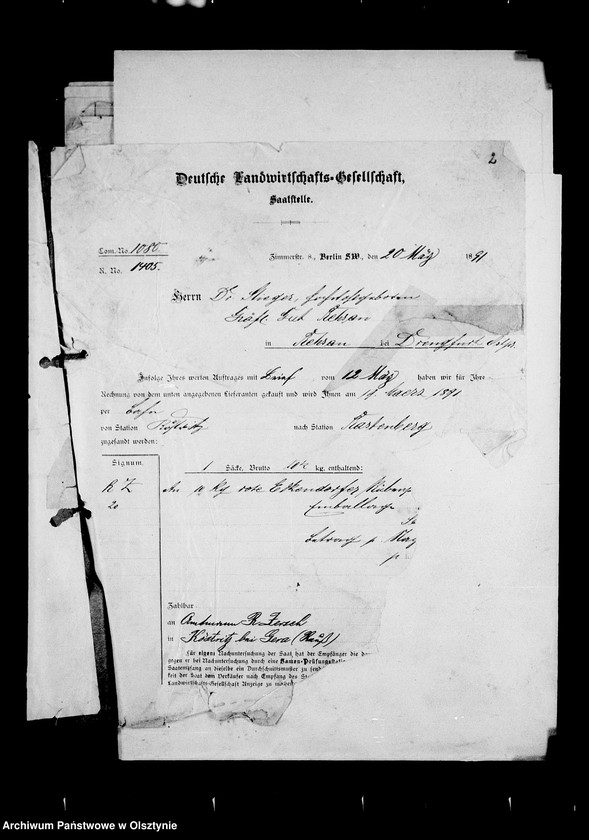 2
Deutsche Landwirtschafts-Gesellschaft,
Saatstelle.
Com. No. 1086.
Zimmerstr. 8., Berlin SW., den 20 März 1891
R. No. 1405.
Herrn Dr
Gräfl. Gut Rehsau
in Rehsau bei Drengfurt Ostpr.
Infolge Ihres werten Auftrages mit Brief vom 12 März haben wir für Ihre
Rechnung von dem unten angegebenen Lieferanten gekauft und wird Ihnen am 19. Maerz 1891
per Bahn
von Station Köstritz nach Station Rastenberg
zugesandt werden:
Signum.
1 Säcke, Brutto 10½ kg. enthaltend:
R Z
20
An 10 Kg rote Eckendorfer
Emballage
Betrag p.
Zahlbar
an Amtmann R. Zersch
in Köstritz bei Gera (Reuß)
Für eigene Nachuntersuchung der Saat hat der Empfänger die
gegen er bei Nachuntersuchung durch eine Samen-Prüfungs
Saatempfang an dieselbe ein Durchschnittsmuster zu
keit der Saat dem Verkäufer nach Empfang des
Landwirtschafts-Gesellschaft Anzeige zu
Archiwum Państwowe w Olsztynie